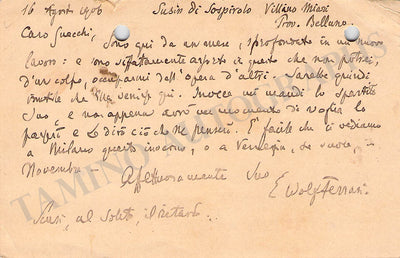 16 Agosto 1906 Susin di Sospirolo Villino Miari
Prov. Belluno.
Caro Guacchi,
Sono qui da un mese, sprofondato in un nuovo
lavoro: e sono sifatamente assorto in questo che non potrei,
d'un colpo, occuparmi dell'opera d'altri. Sarebbe quindi
inutile che Ella venisse qui. Invece mi mandi lo spartito
Suo, e non appena avrò un momento di voglia lo
e Le dirò ciò che ne penso. È facile che ci vediamo
a Milano quest'inverno, o a Venezia, se vuole, in
Novembre.
Affettuosamente Suo
E Wolf Ferrari
Scusi, al solito, il ritardo.
TAMINO AUTOGRAPHS